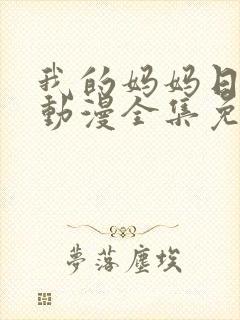 我的妈妈日
動漫全集免
夢落塵埃